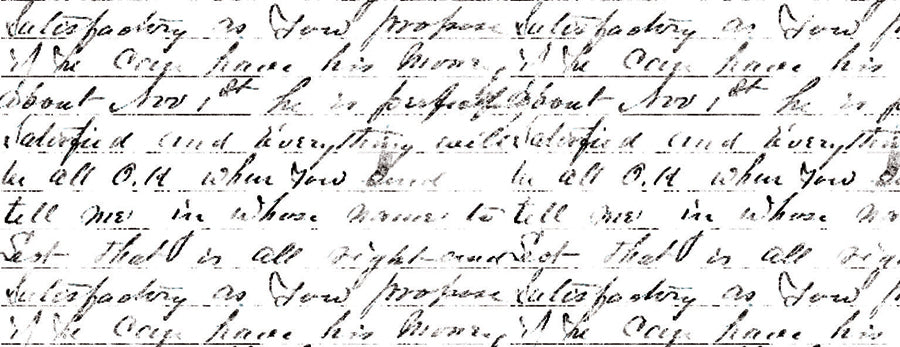 Satisfactory as You propose Satisfactory as You
if he Can have his Money if he Can have his
about Nov 1st he is perfectly about Nov 1st he is
Satisfied and Everything will Satisfied and Everything
be all O.K when You send be all O.K when You
tell me in whose name to tell me in whose
that is all right and that is all
Satisfactory as You propose Satisfactory as You
if he Can have his Money if he Can have his